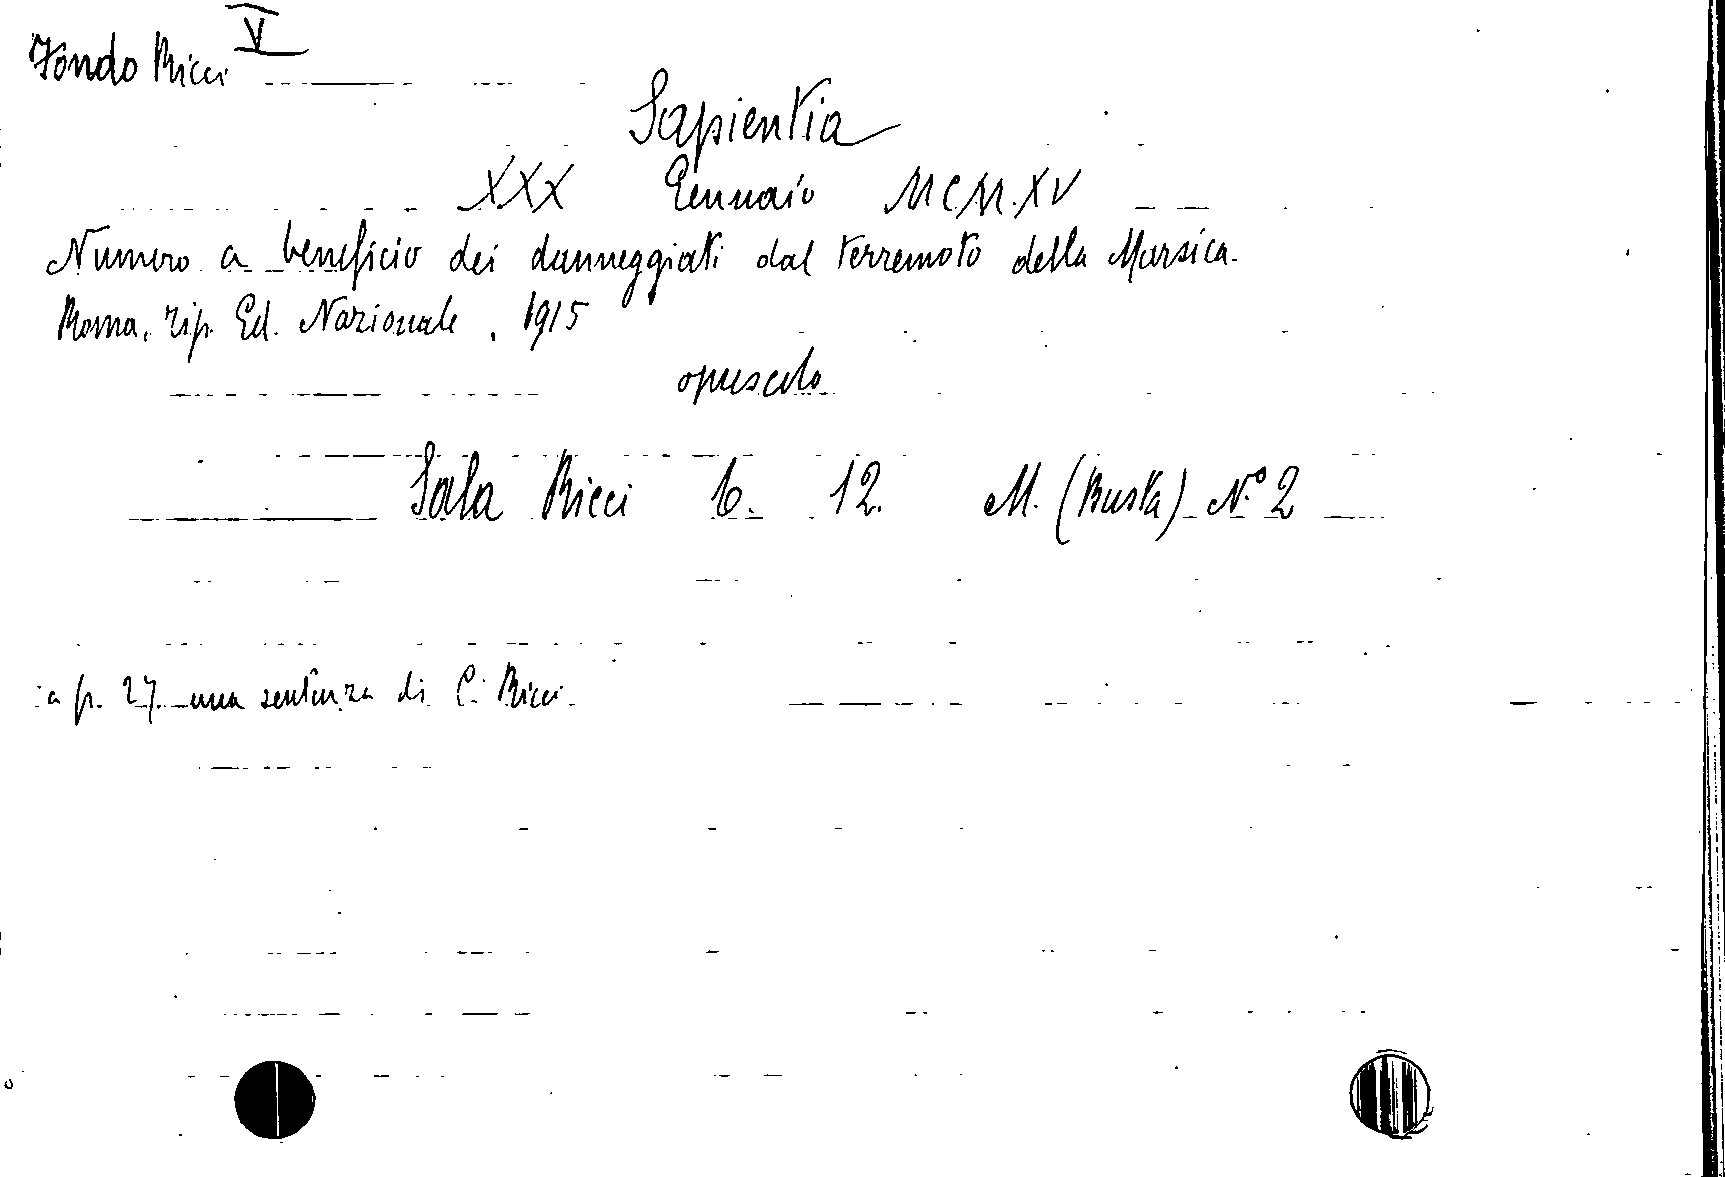 Fondo Ricci V
Sapientia
XXX Gennaio MCM.XV
Numero a beneficio dei danneggiati dal terremoto della Marsica.
Roma, tip. Ed. Nazionale, 1915
opuscolo
Sala Ricci 6. 12. M. (Busta) N.º 2
a p. 27 una sentenza di C. Ricci.